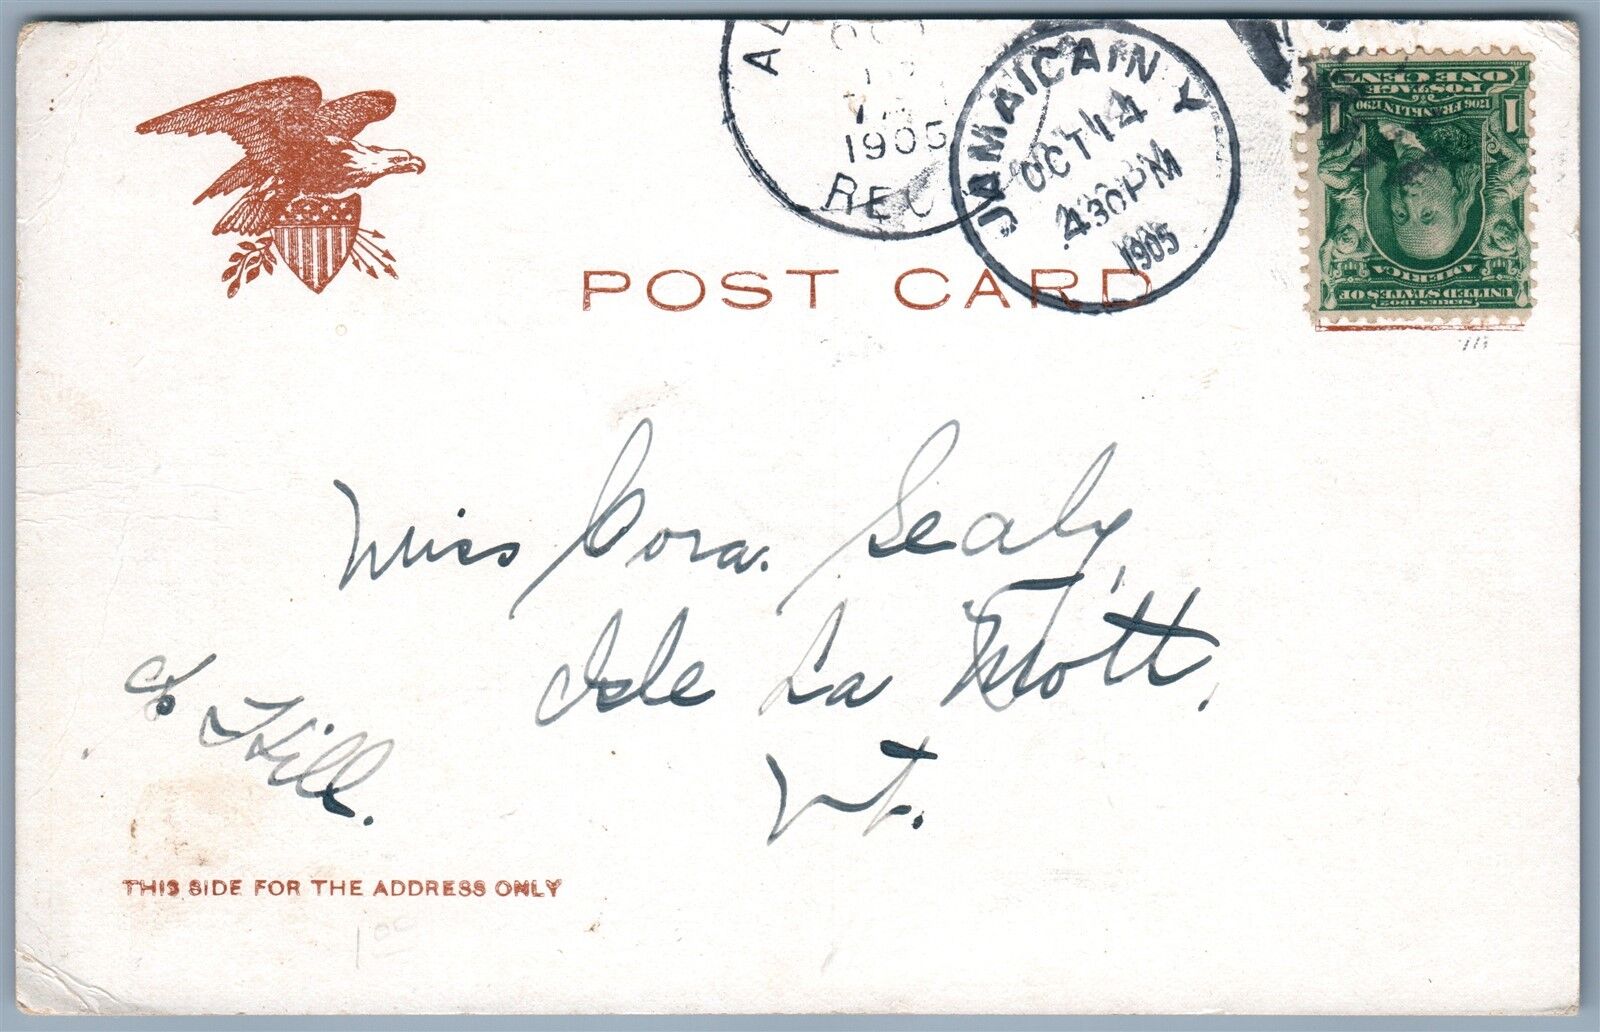 OCT
1905
REC
JAMAICA N Y
OCT 14
4 30 PM
1905
POSTAGE
ONE CENT
1 1
1706 FRANKLIN 1790
SERIES 1902
UNITED STATES OF
AMERICA
POST CARD
Miss Cora. Sealy,
Isle La Mott.
Vt.
c/o Hill.
THIS SIDE FOR THE ADDRESS ONLY
1 00